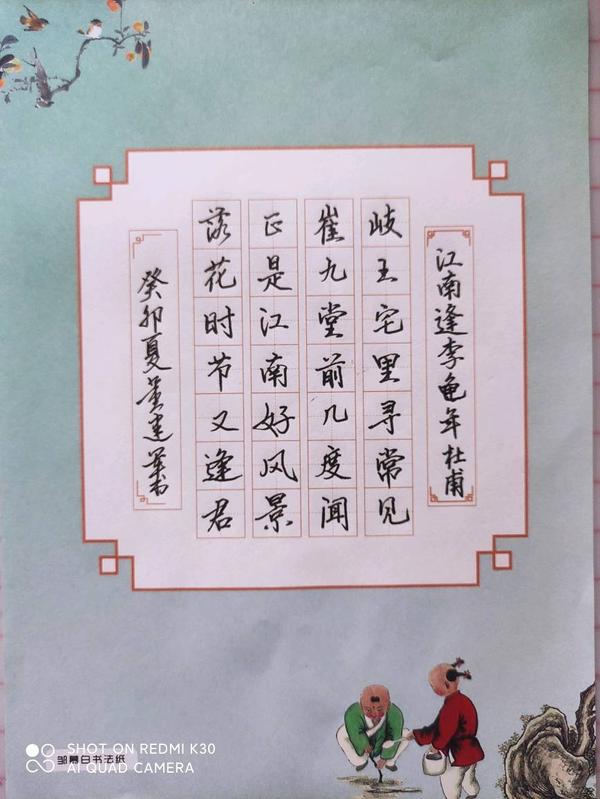 江南逢李龟年 杜甫
岐王宅里寻常见
崔九堂前几度闻
正是江南好风景
落花时节又逢君
癸卯夏黄建军书
SHOT ON REDMI K30
AI QUAD CAMERA
邹慕白书法纸